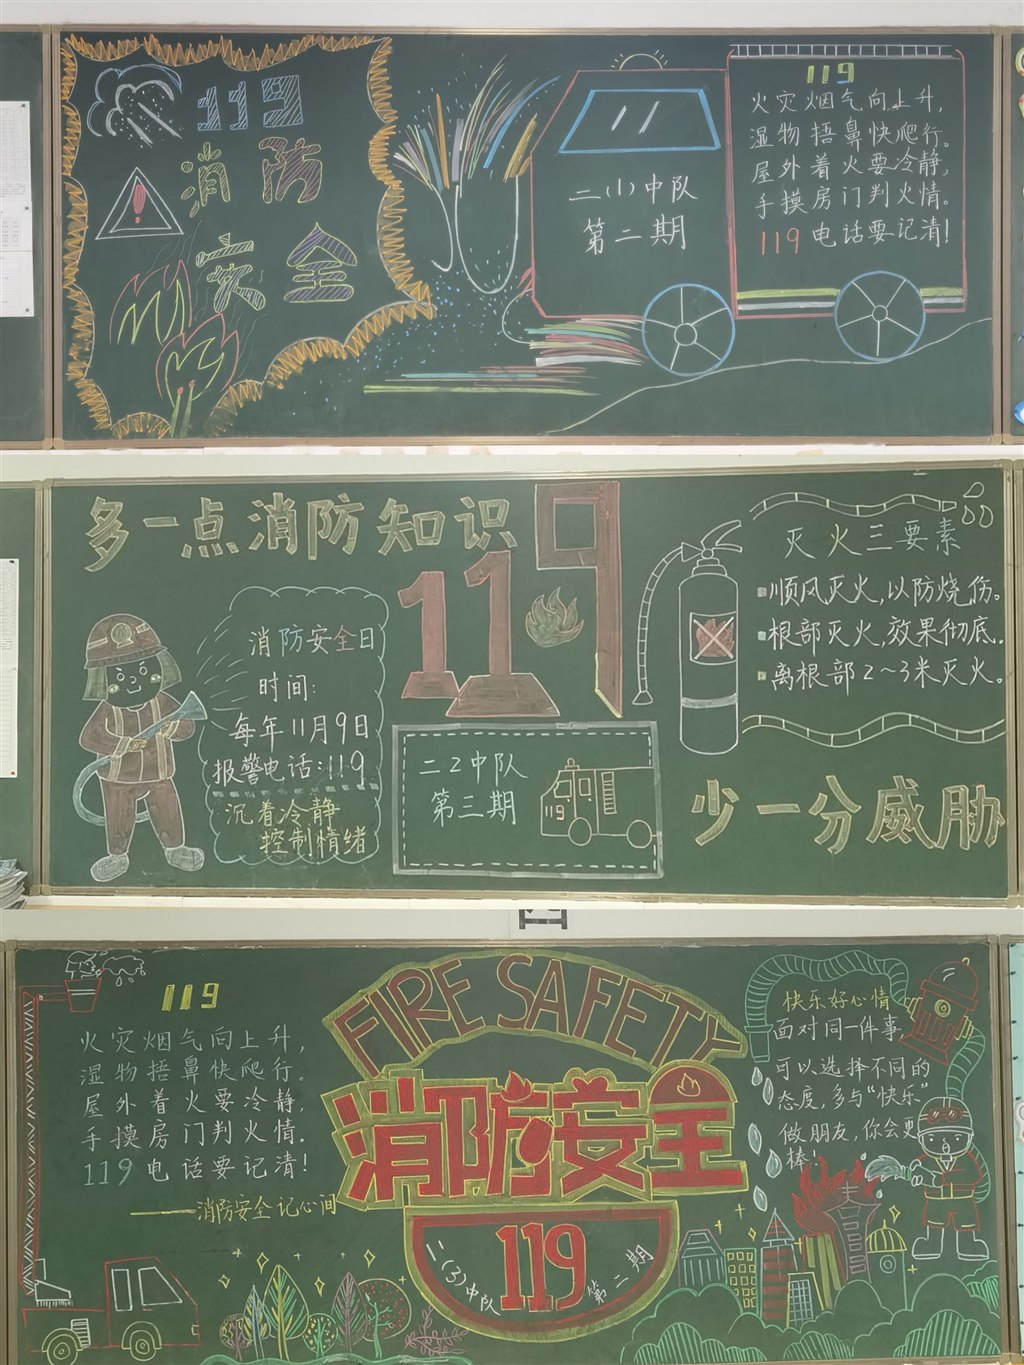 119
消防
安全
二(1)中队
第二期
119
火灾烟气向上升,
湿物捂鼻快爬行。
屋外着火要冷静,
手摸房门判火情。
119电话要记清!
多一点消防知识
119
消防安全日
时间:
每年11月9日
报警电话:119
沉着冷静
控制情绪
二2中队
第三期
119
灭火三要素
顺风灭火,以防烧伤。
根部灭火,效果彻底.
离根部2~3米灭火。
少一分威胁
119
火灾烟气向上升,
湿物捂鼻快爬行.
屋外着火要冷静,
手摸房门判火情.
119电话要记清!
——消防安全记心间
FIRE SAFETY
消防安全
119
二(3)中队
第二期
快乐好心情
面对同一件事
可以选择不同的
态度,多与“快乐”
做朋友,你会更
棒!